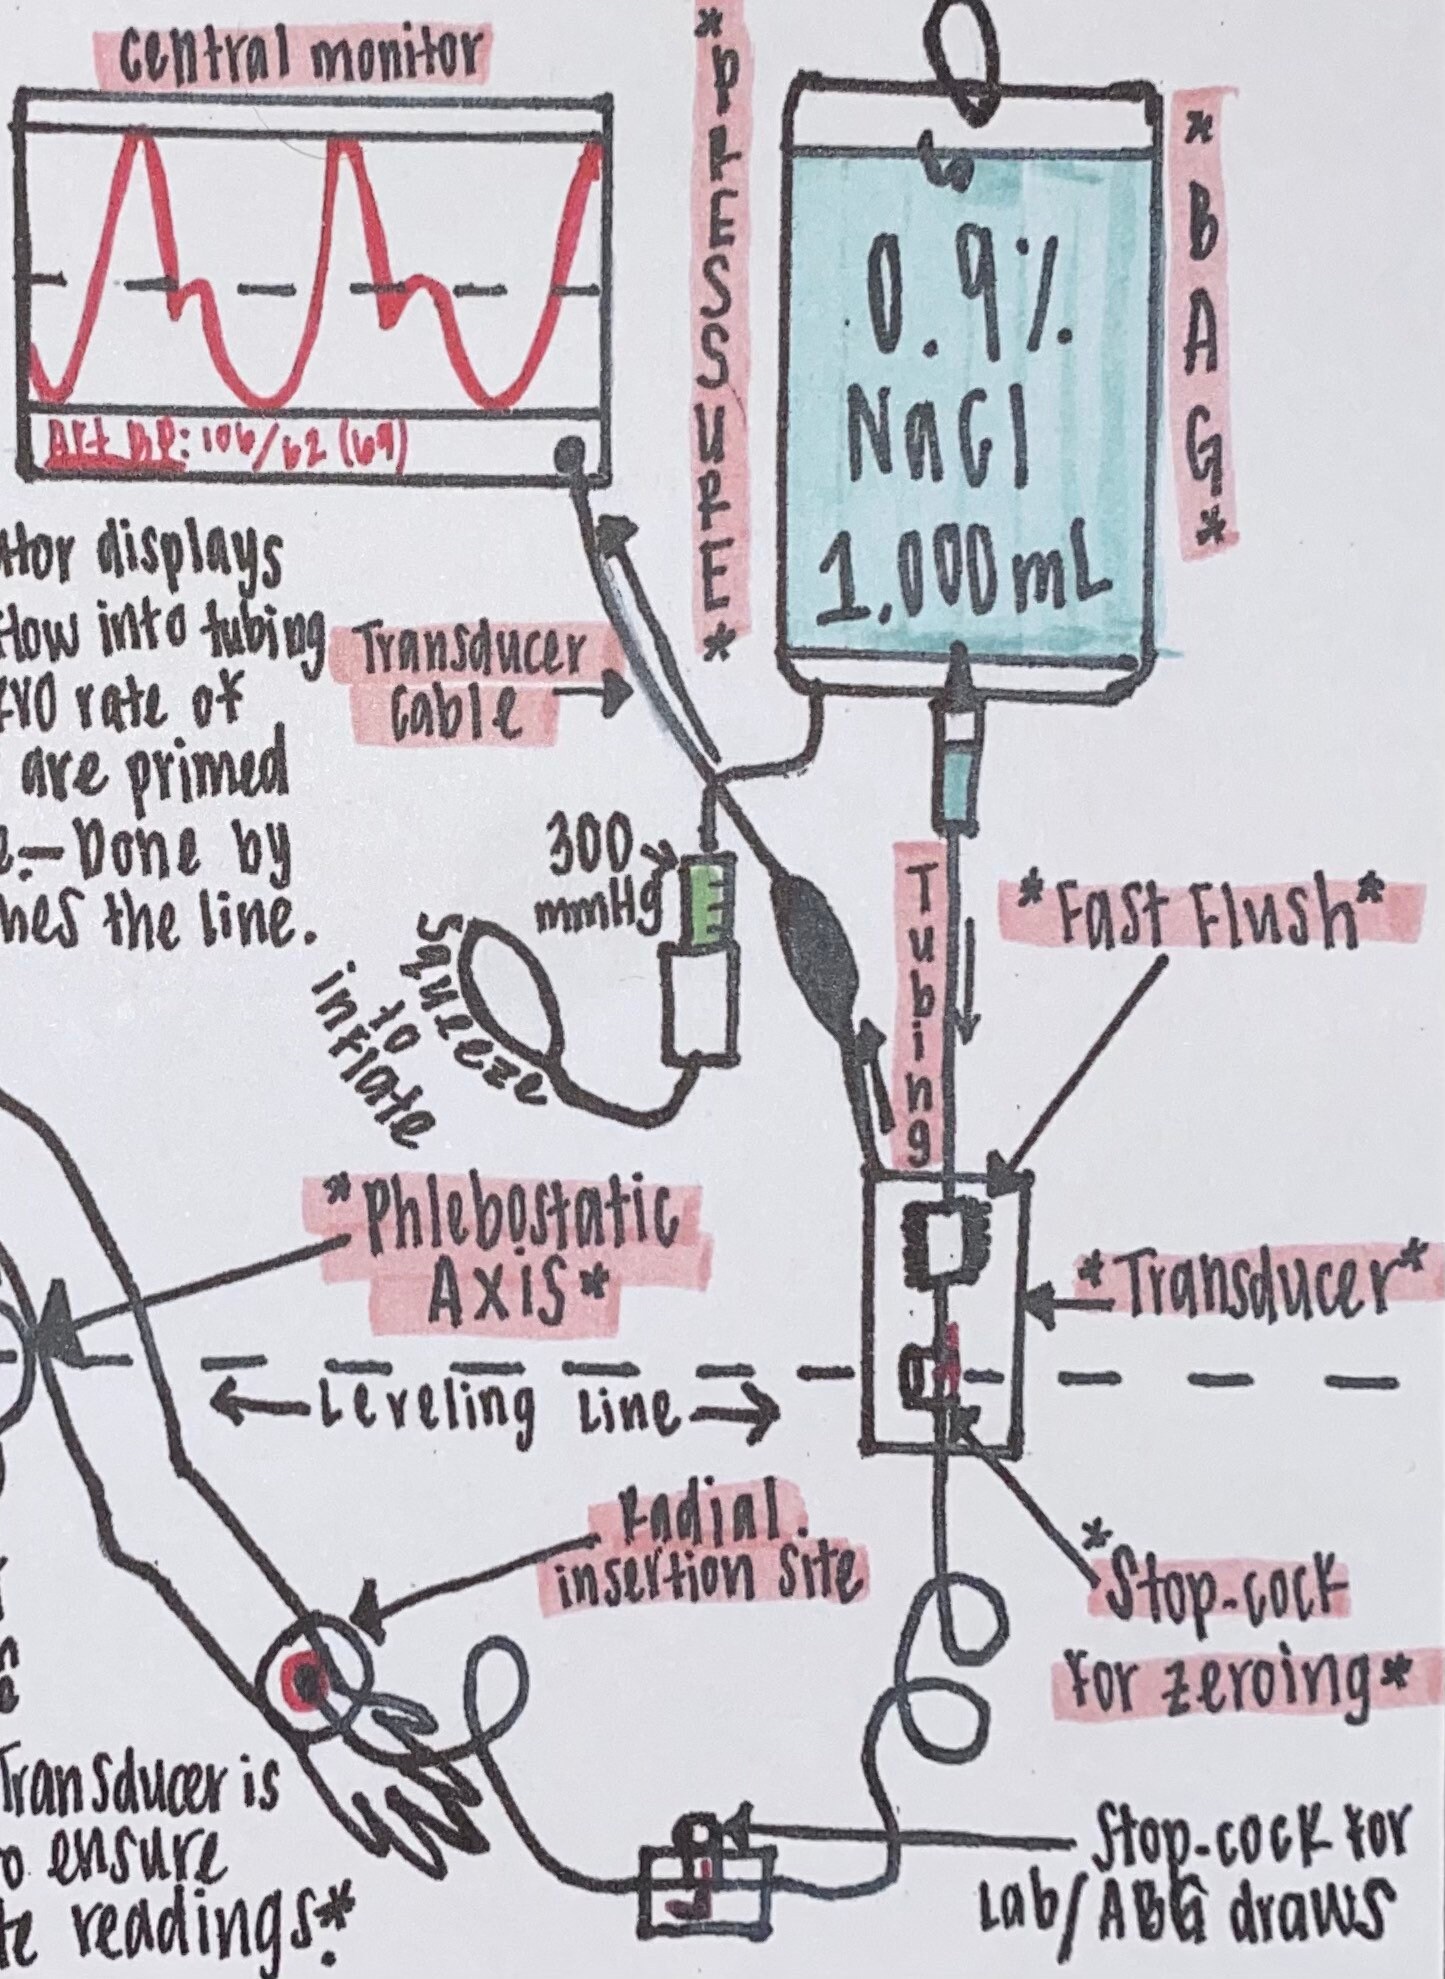 Central monitor
Art BP: 106/62 (69)
*PRESSURE*
*BAG*
0.9%
NaCl
1,000mL
displays
flow into tubing
rate of
are primed
— Done by
the line.
Transducer
Cable
300
mmHg
Squeeze
to
inflate
Tubing
*Fast Flush*
*Phlebostatic
Axis*
*Transducer*
Leveling Line
Radial
insertion site
*Stop-cock
For zeroing*
Transducer is
ensure
readings.*
Stop-cock for
Lab/ABG draws